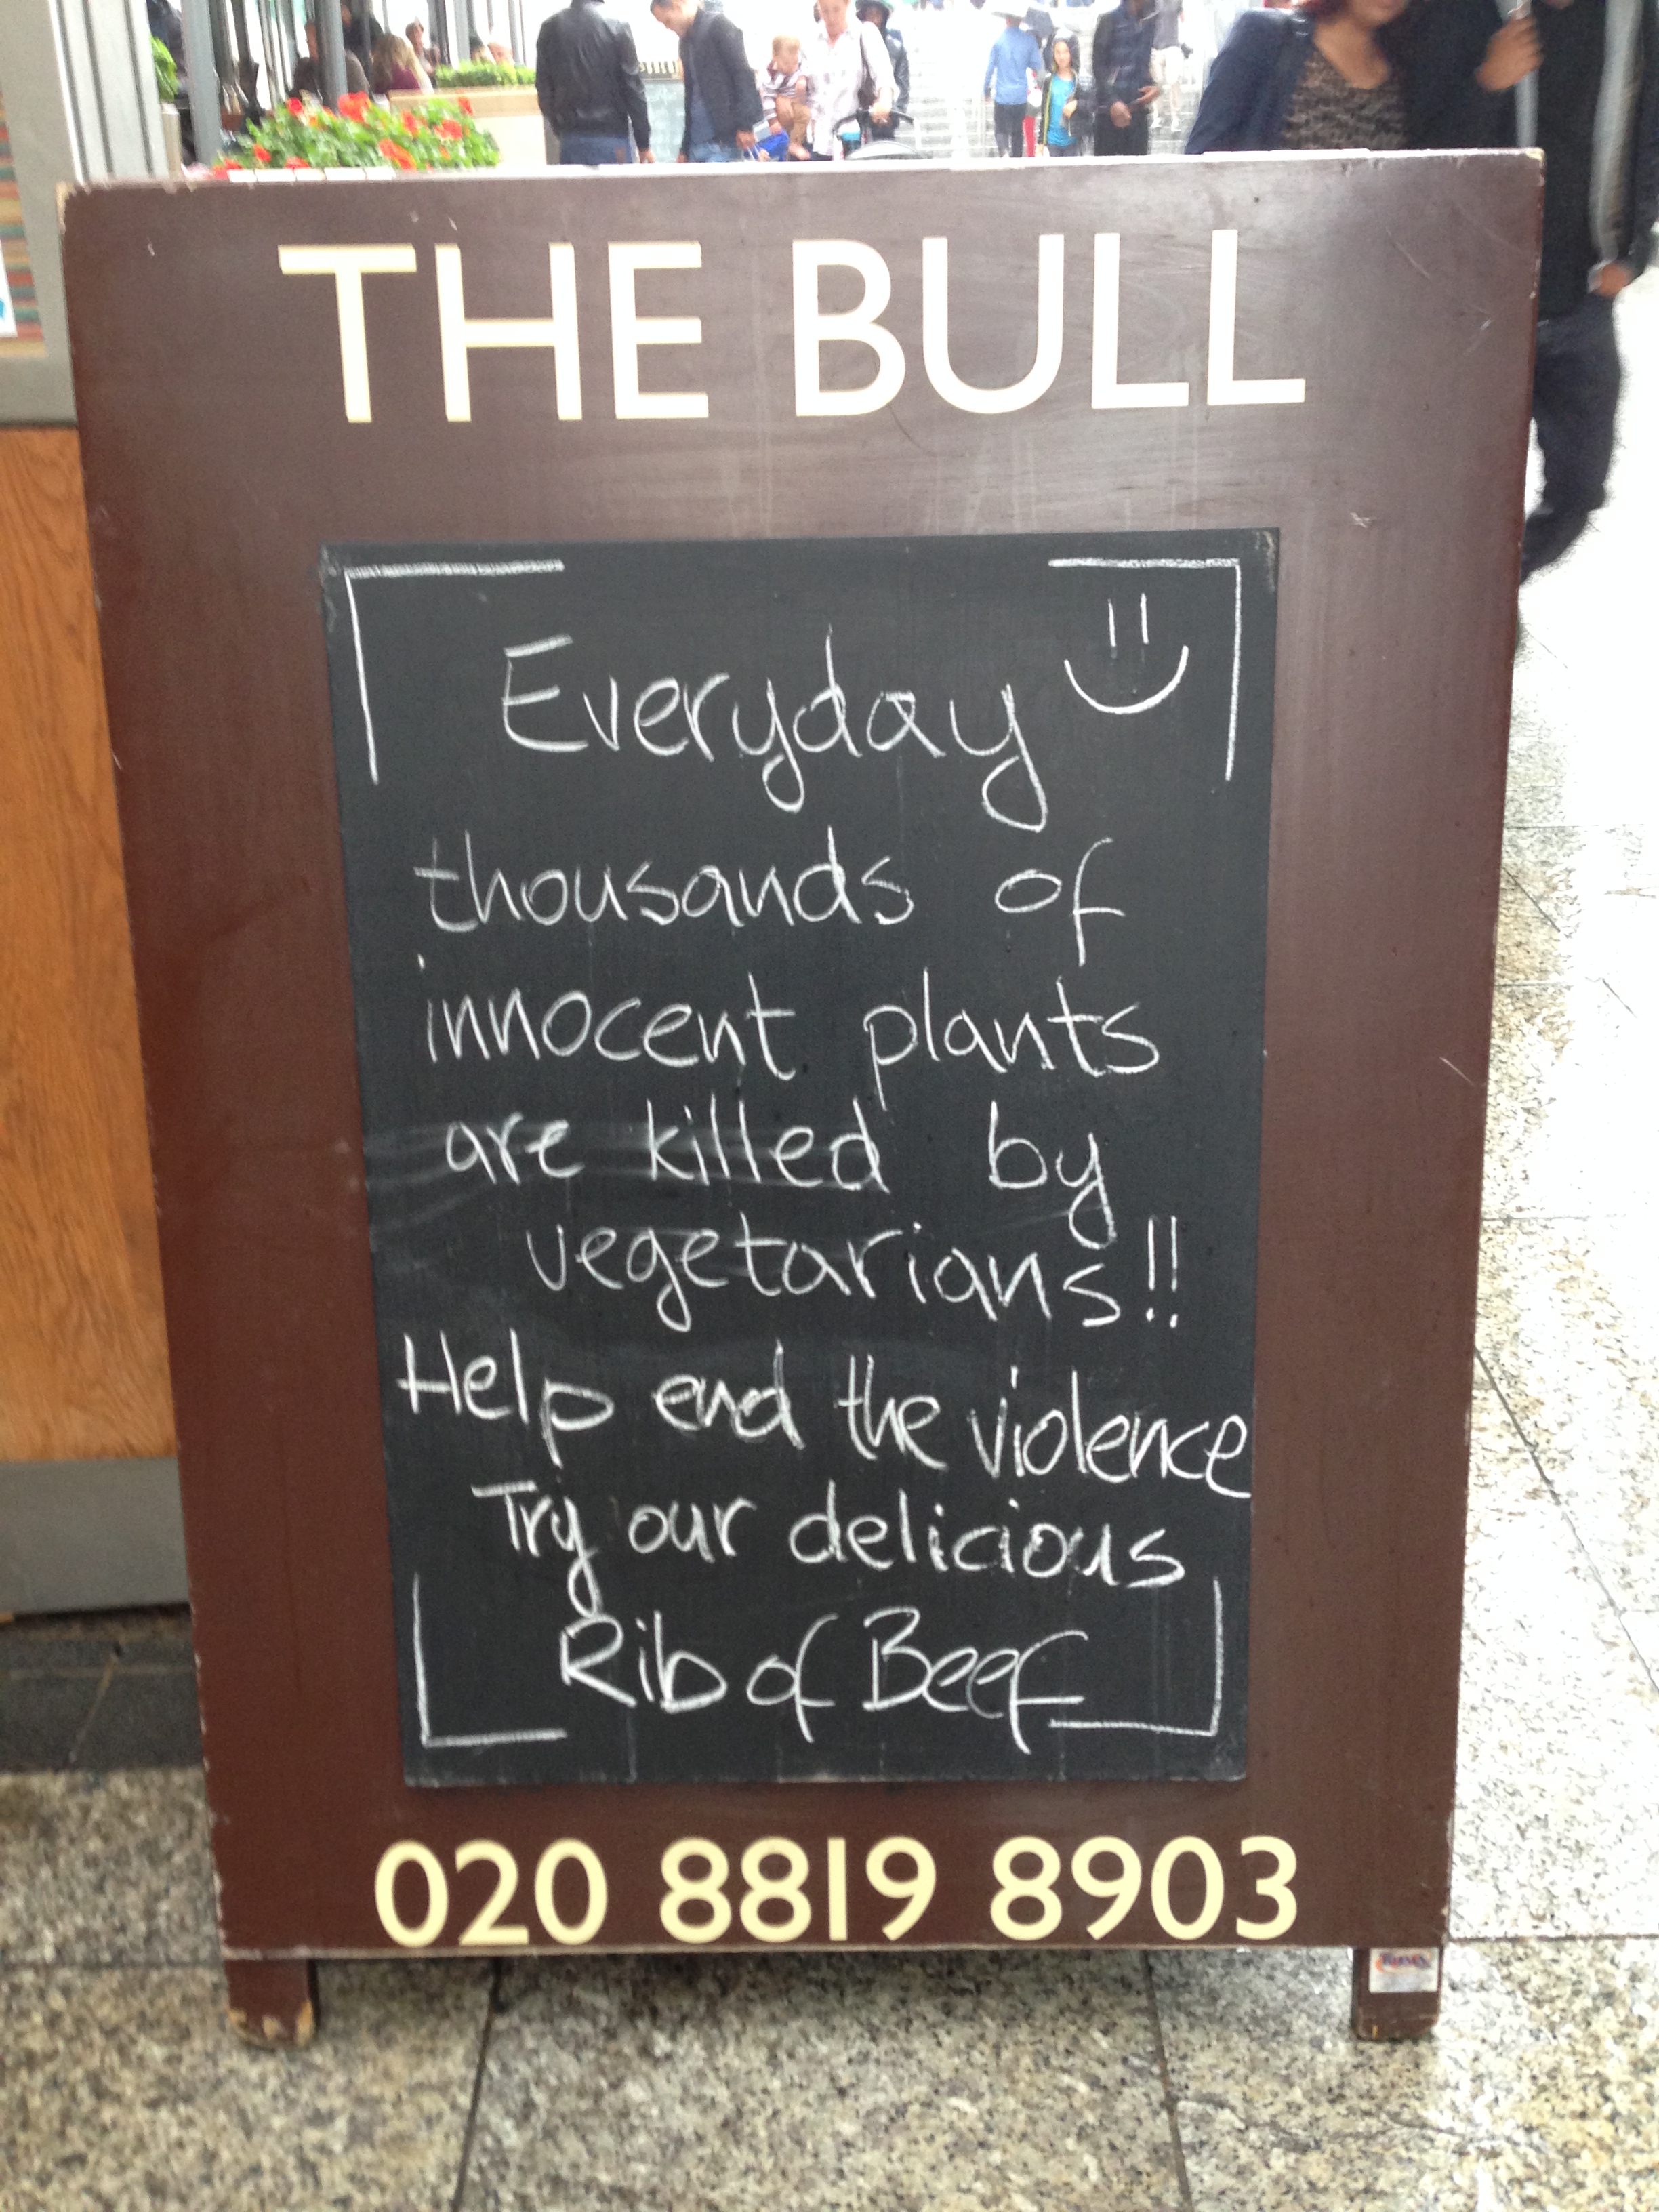 THE BULL
Everyday
thousands of
innocent plants
are killed by
vegetarians!!
Help end the violence
Try our delicious
Rib of Beef
020 8819 8903